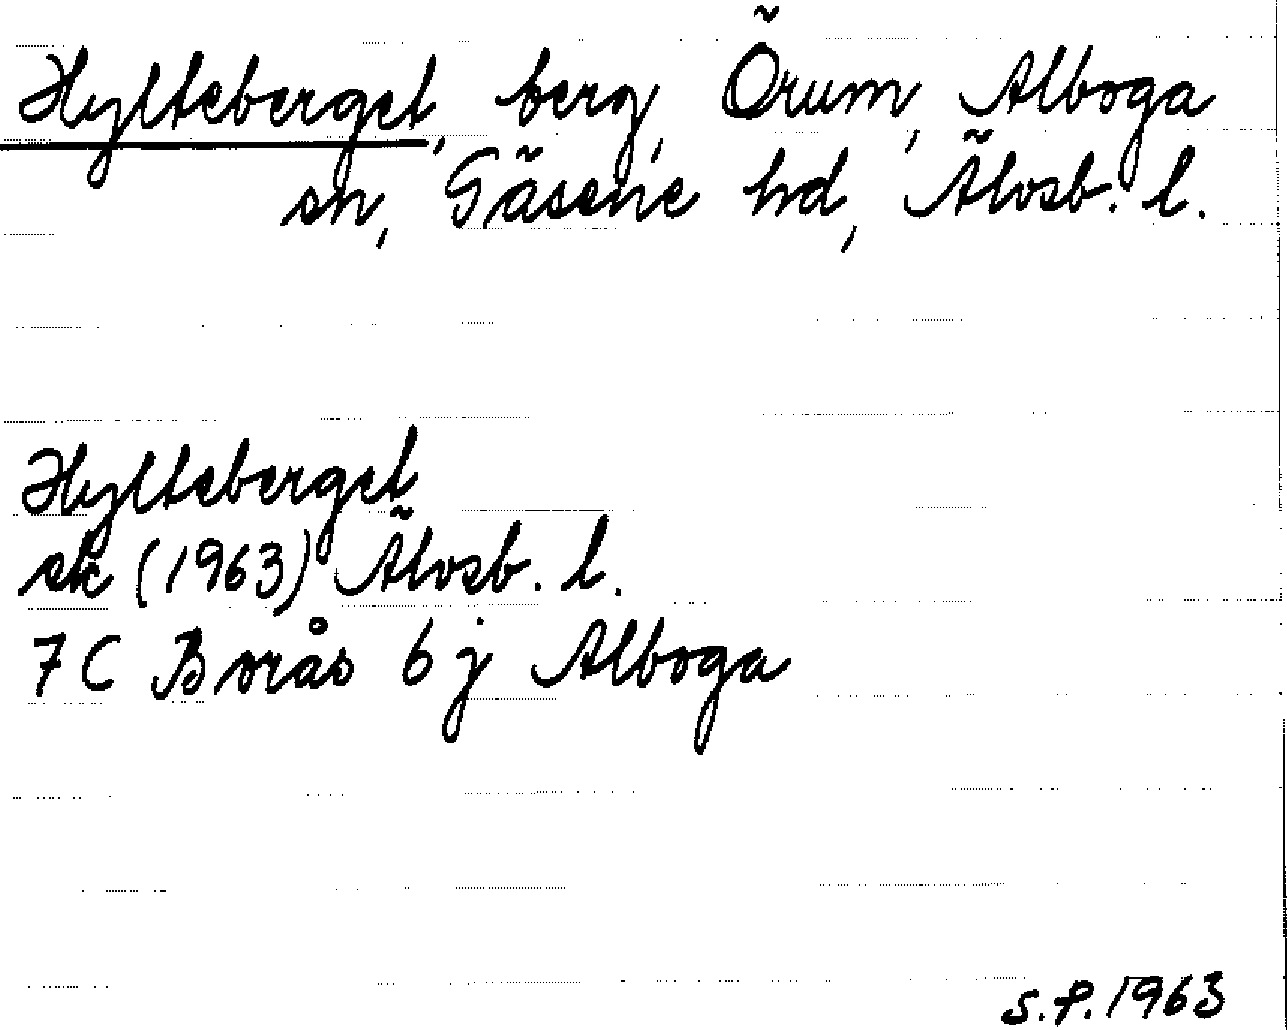 Hylteberget, berg, Örum, Alboga
sn, Gäsene hd, Älvsb. l.
Hylteberget
ek (1963) Älvsb. l.
7 C Borås 6 j Alboga
S.P. 1963